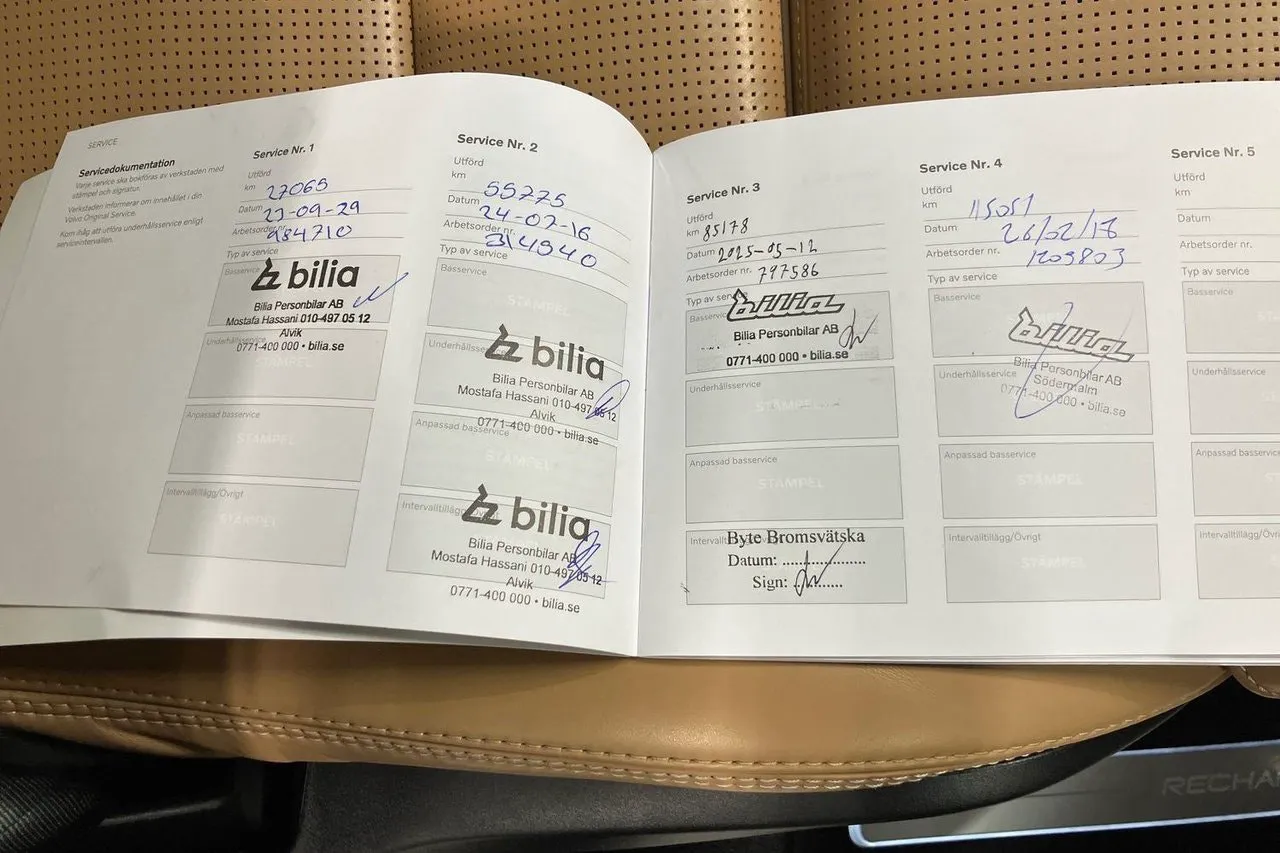 SERVICE
Servicedokumentation
Varje service ska bokföras av verkstaden med
stämpel och signatur.
Verkstaden informerar om innehållet i din
Volvo Original Service.
Kom ihåg att utföra underhållsservice enligt
serviceintervallen.
Service Nr. 1
Utförd
km 27065
Datum 23-09-29
Arbetsorder 984710
Typ av service
Basservice
bilia
Bilia Personbilar AB
Mostafa Hassani 010-497 05 12
Alvik
0771-400 000 • bilia.se
Underhållsservice
STÄMPEL
Anpassad basservice
STÄMPEL
Intervalltillägg/Övrigt
STÄMPEL
Service Nr. 2
Utförd
km 55775
Datum 24-07-16
Arbetsorder nr. 314940
Typ av service
Basservice
STÄMPEL
Underhållsservice
bilia
Bilia Personbilar AB
Mostafa Hassani 010-497 05 12
Alvik
0771-400 000 • bilia.se
Anpassad basservice
STÄMPEL
Intervalltillägg
bilia
Bilia Personbilar AB
Mostafa Hassani 010-497 05 12
Alvik
0771-400 000 • bilia.se
Service Nr. 3
Utförd
km 85178
Datum 2025-05-12
Arbetsorder nr. 797586
Typ av service
Basservice
bilia
Bilia Personbilar AB
0771-400 000 • bilia.se
Underhållsservice
STÄMPEL
Anpassad basservice
STÄMPEL
Intervalltillägg
Byte Bromsvätska
Datum: .....................
Sign: .............
Service Nr. 4
Utförd
km 115051
Datum 26/02/17
Arbetsorder nr. 1209803
Typ av service
Basservice
bilia
Bilia Personbilar AB
Södermalm
0771-400 000 • bilia.se
Underhållsservice
Anpassad basservice
STÄMPEL
Intervalltillägg/Övrigt
STÄMPEL
Service Nr. 5
Utförd
km
Datum
Arbetsorder nr.
Typ av service
Basservice
Underhållsservice
Anpassad basservice
Intervalltillägg/Övri
RECHA